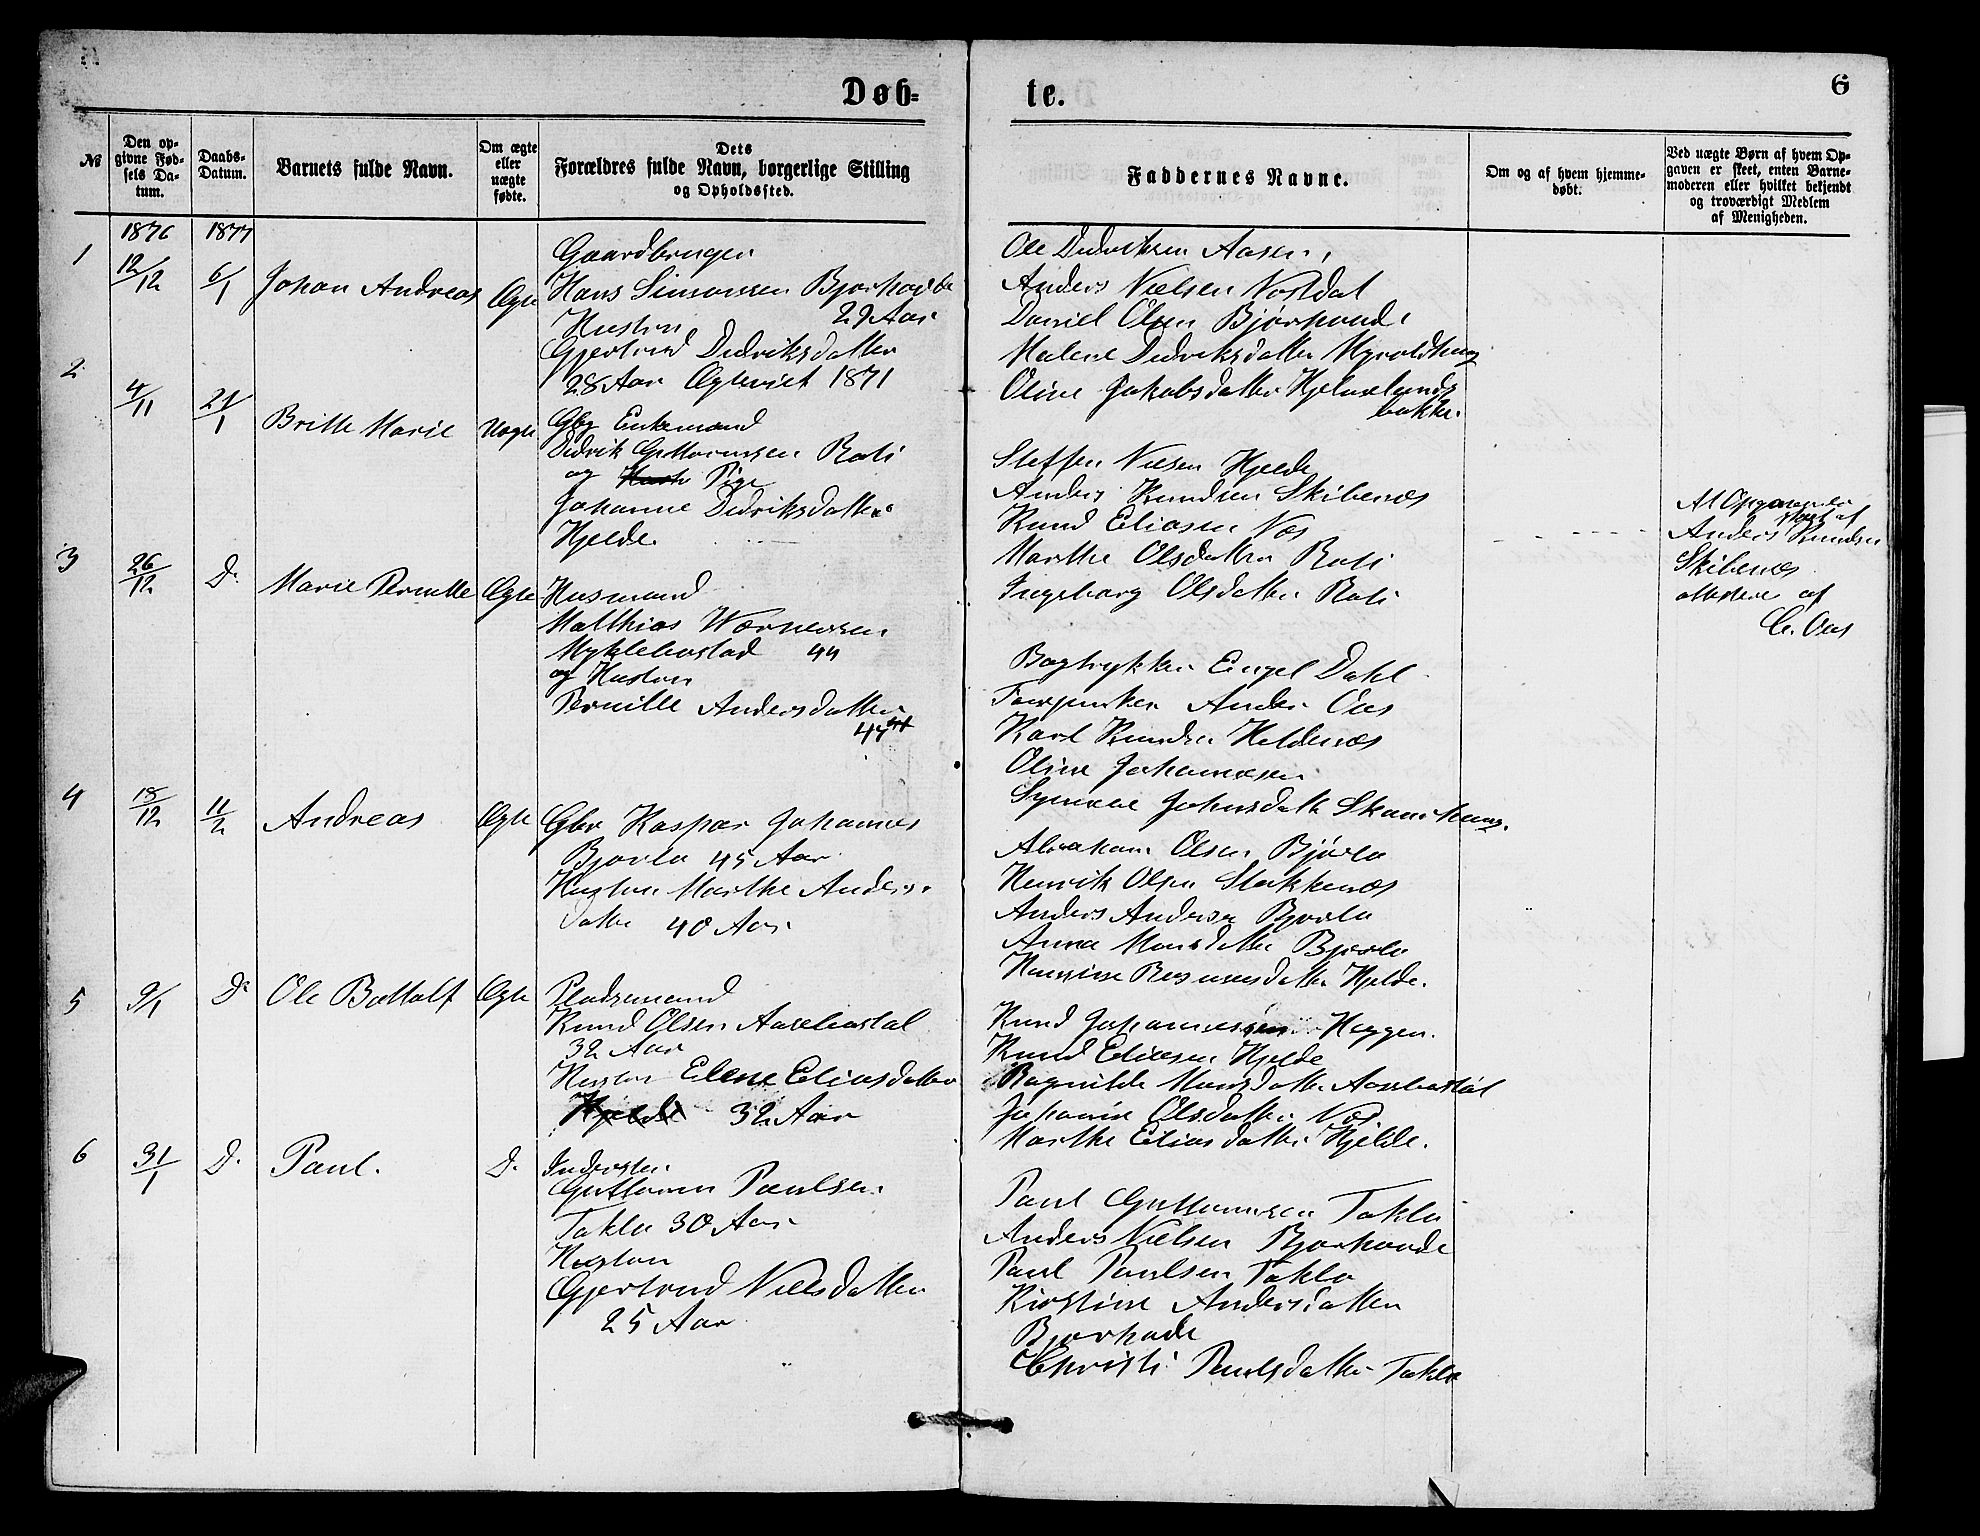 Døb-
te.
6
№
Den op-
givne Fød-
sels Da-
tum.
Daabs-
Datum.
Barnets fulde Navn.
Om ægte
eller
uægte
fødte.
Dets
Forældres fulde Navn, borgerlige Stilling
og Opholdssted.
Faddernes Navne.
Om og af hvem hjemme-
døbt.
Ved uægte Børn af hvem Op-
gaven er skeet, enten Barne-
moderen eller hvilket bekjendt
og troværdigt Medlem
af Menigheden.
1876 1877
1
12/12 6/1 Johan Andreas Ægte
Gaardbruger
Hans Simonsen
29 Aar
Hustru
Gjertrud Didriksdatter
28 Aar Ægteviet 1871
Ole Didriksen Aasen
Anders Nielsen Nosdal
Daniel Olsen Bjørhovde
Malene Didriksdatter
Oline Jakobsdatter Hjelmelands
bakke.
2
4/11 21/1 Britte Marie Uægte
Gbr Enkemand
Didrik Guttormsen Roti
og Pige
Johanne Didriksdatter
Hjelde.
Steffen Nielsen Hjelde
Anders Knudsen Skibenes
Knud Eliasen Nos
Marthe Olsdatter Roti
Ingeborg Olsdatter Roti
At Opgaven er
skeet af
Anders Knudsen
Skibenes
attesteres af
C. Aas
3
26/12 D. Marie Pernille Ægte
Husmand
Matthias Wernersen
Myklebostad 44
og Hustru
Pernille Andersdatter
44
Bogtrykker Engel Dahl
Anders Aas
Karl Knudsen Heldenæs
Oline Johannesen
Synneve Johnsdatter
4
18/12 11/2 Andreas Ægte
Gbr Kaspar Johannes
Bjørlo 45 Aar
Hustru Marthe Anders-
datter 40 Aar
Abraham Olsen Bjørlo
Henrik Olsen Stokkenæs
Anders Andersen Bjørlo
Anna Monsdatter Bjørlo
Hansine Rasmusdatter Hjelde.
5
9/1 D. Ole Bottolf Ægte
Pladsemand
Knud Olsen Aasebostøl
32 Aar
Hustru Elene Eliasdatter
Hjelde 32 Aar
Knud Johannessen Heggen.
Knud Eliasen Hjelde
Ragnilde Monsdatter Aasebostøl
Johanne Olsdatter Nos
Marthe Eliasdatter Hjelde.
6
31/1 D. Paul. D.
Inderster
Guttorm Paulsen
Taklo 30 Aar
Hustru
Gjertrud Nielsdatter
25 Aar
Paul Guttormsen Taklo
Anders Nielsen Bjørhovde
Paul Paulsen Taklo
Kirstine Andersdatter
Bjørhode
Christi Paulsdatter Taklo